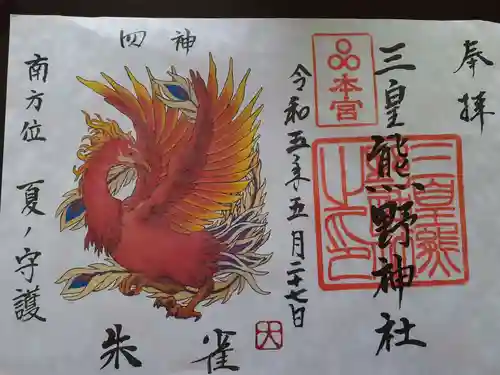 奉拝
三皇熊野神社
本宮
三皇熊野神社之印
令和五年五月二十七日
四神
南方位 夏ノ守護
朱雀